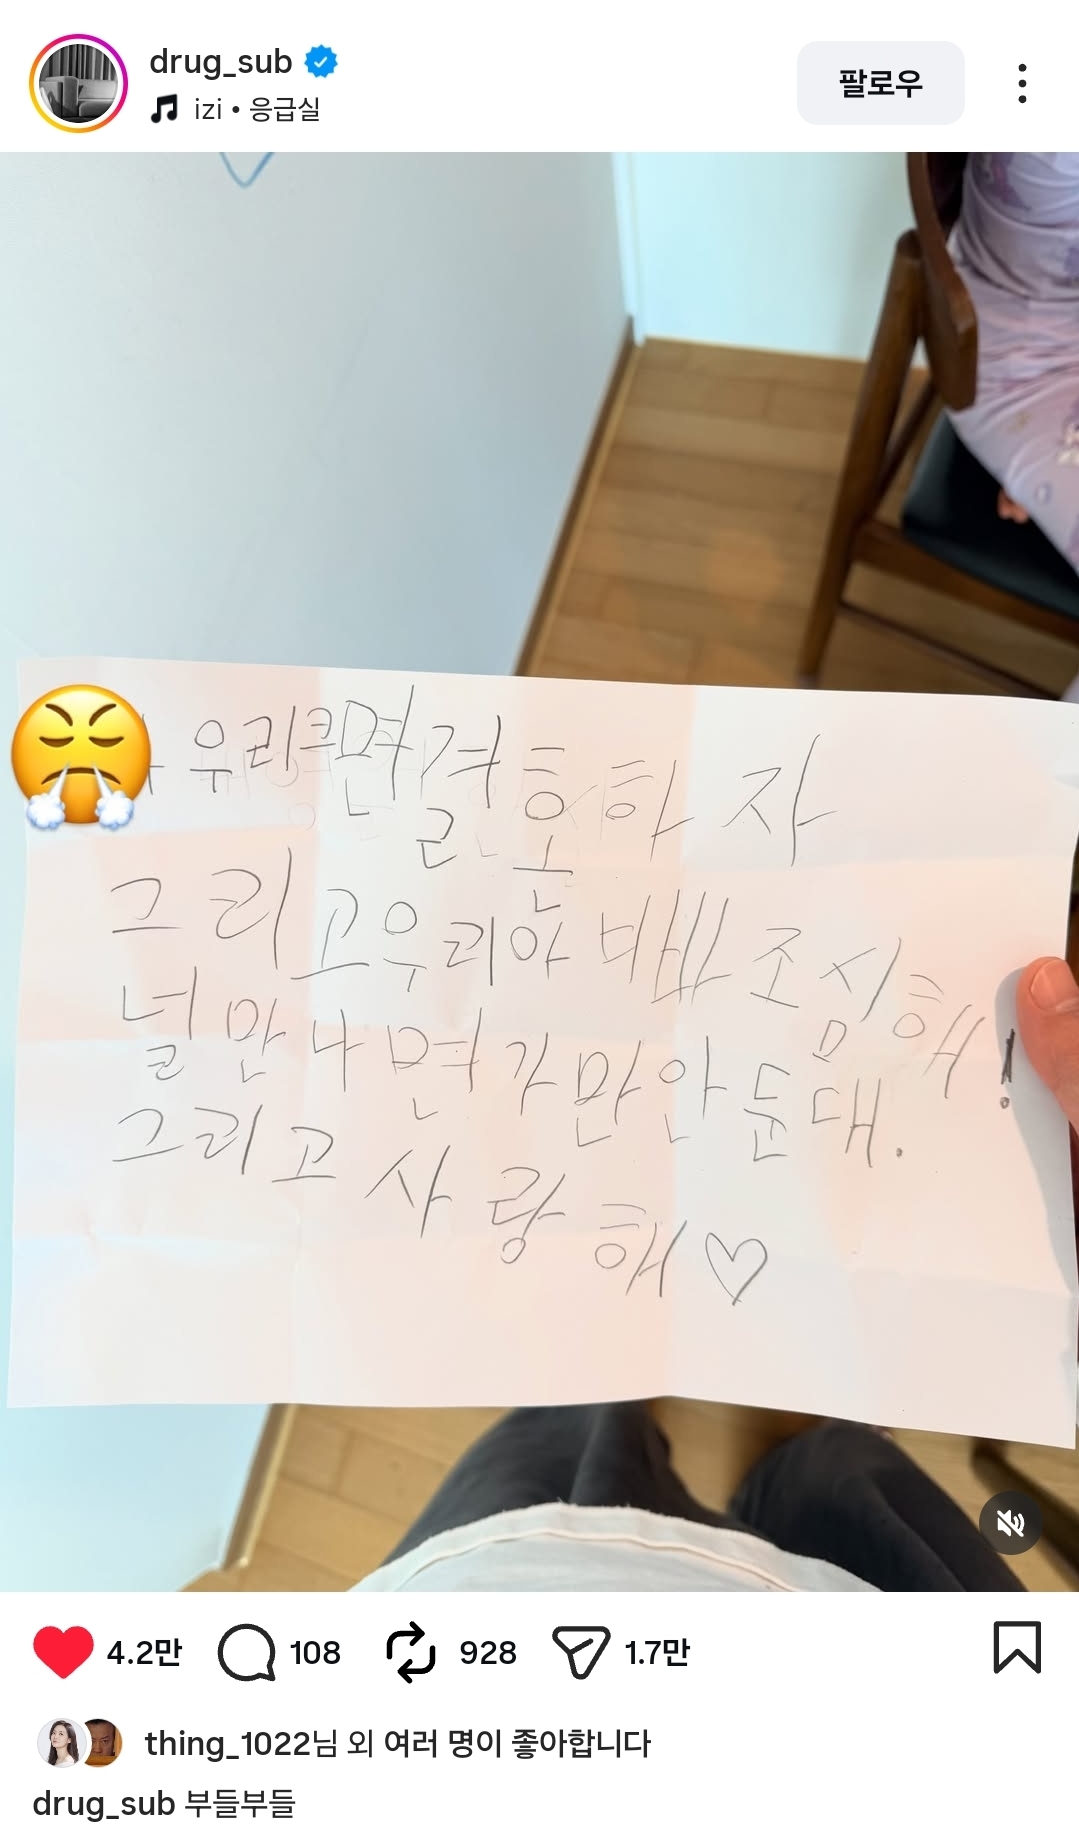 drug_sub
izi • 응급실
팔로우
우리크면결혼하자
그리고우리아빠조심해!
널만나면가만안둔대.
그리고사랑해♡
4.2만 108 928 1.7만
thing_1022님 외 여러 명이 좋아합니다
drug_sub 부들부들